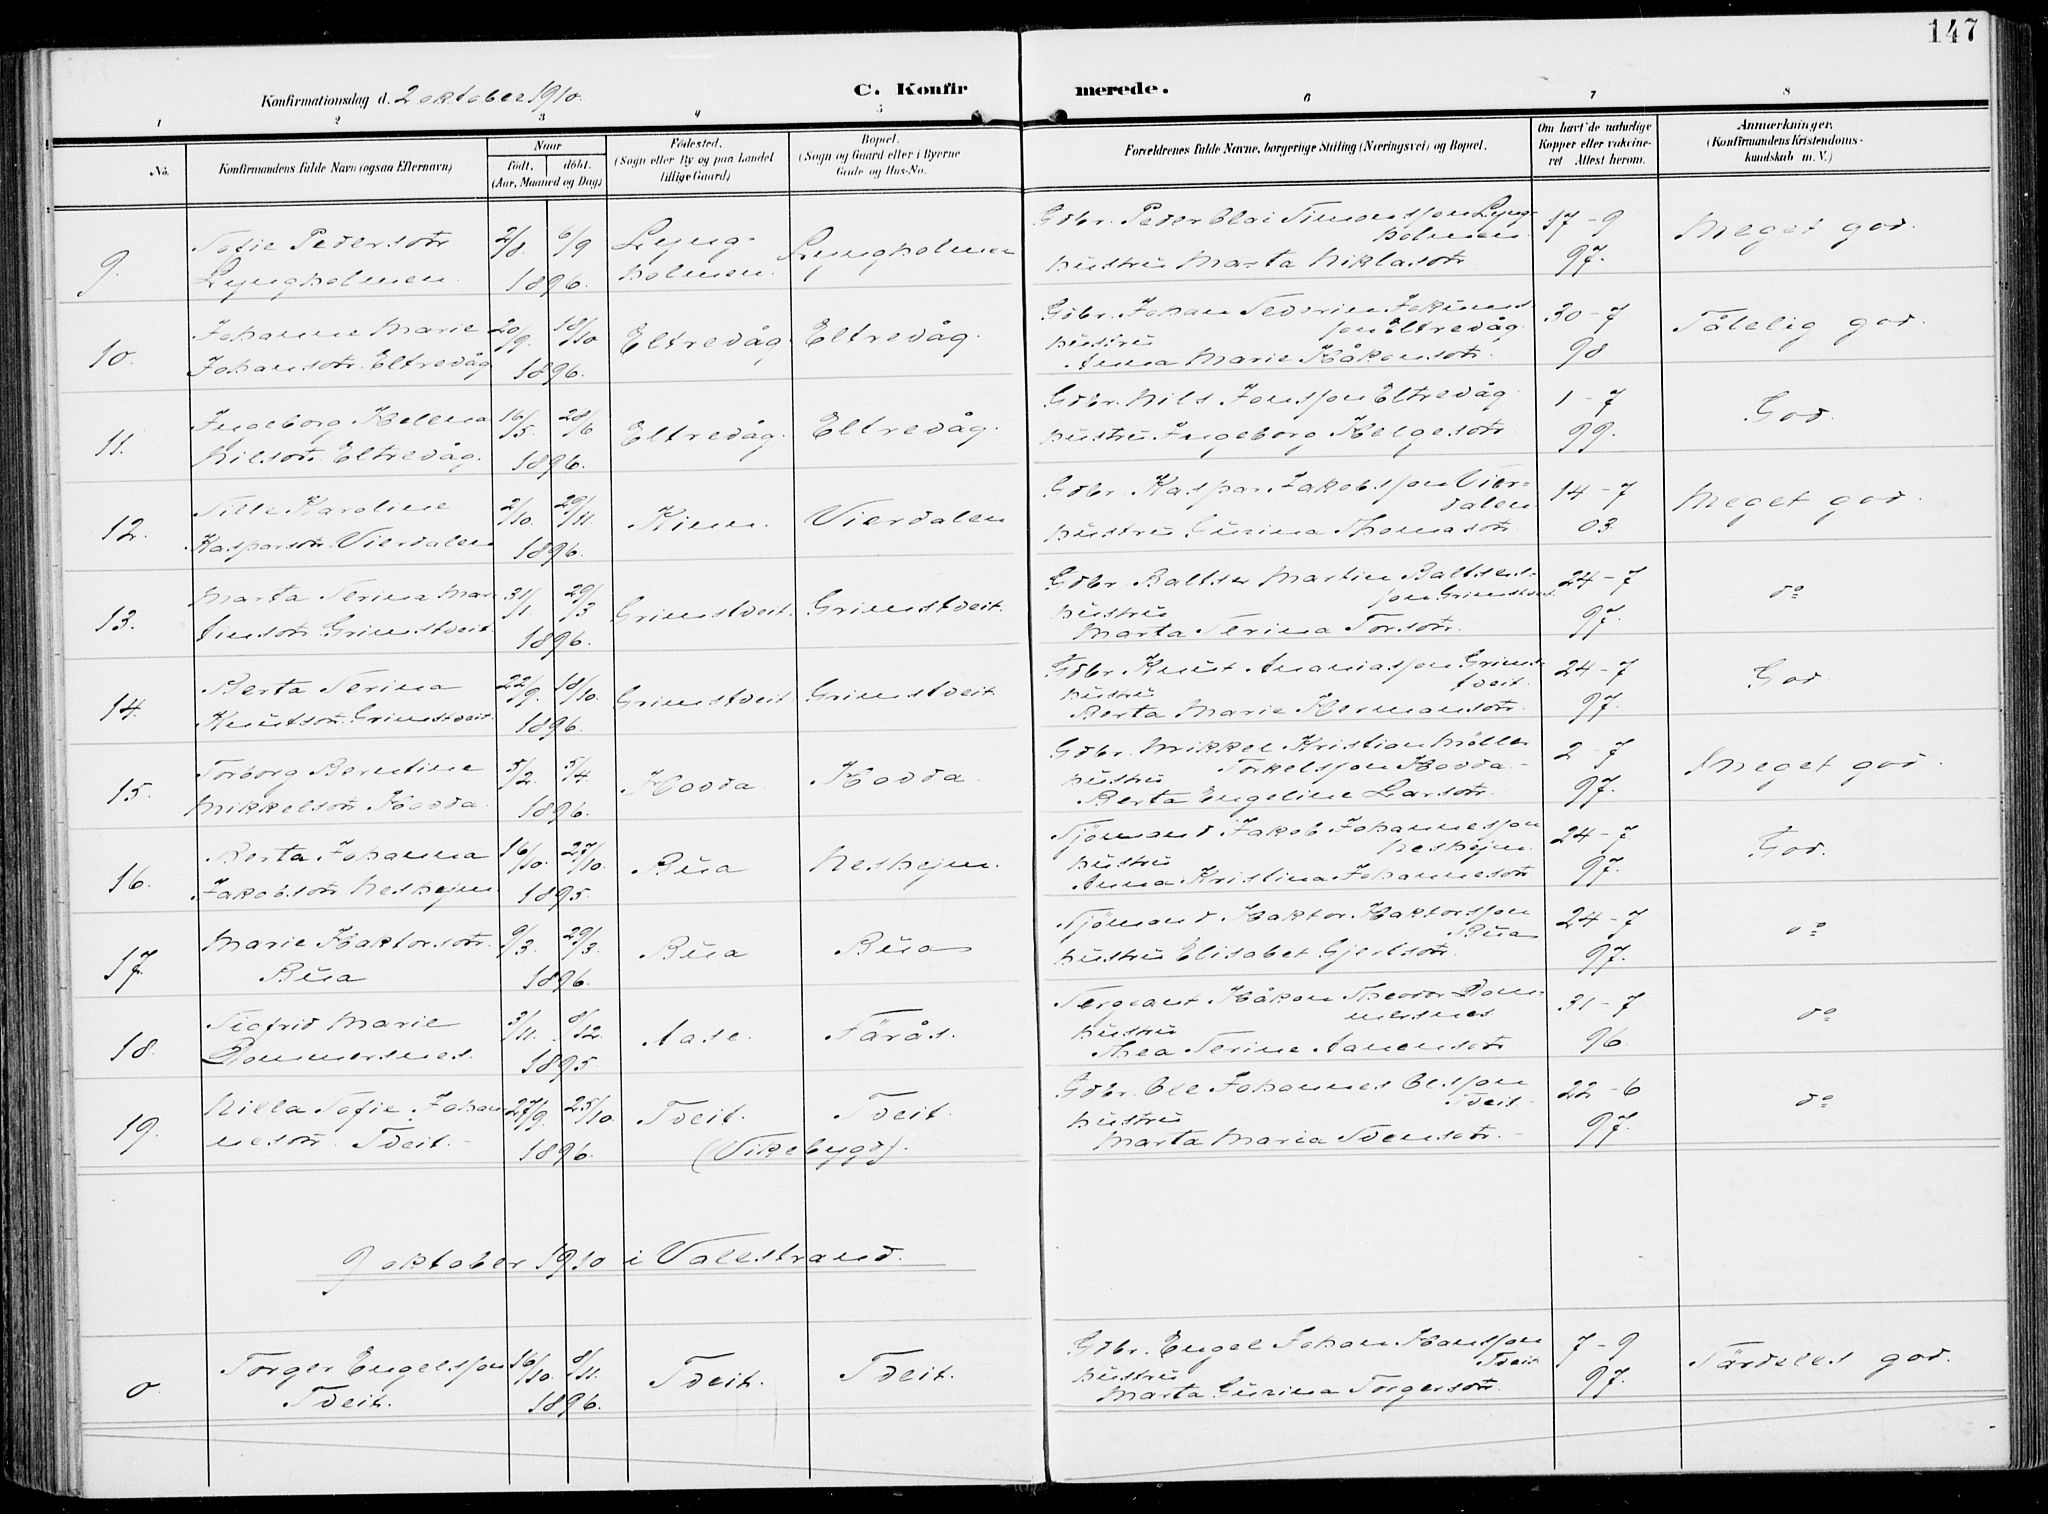 147
Konfirmationsdag d. 2 oktober 1910.
C. Konfirmerede.
1 2 3 4 5 6 7 8
No.
Konfirmandens fulde Navn (ogsaa Efternavn)
Naar
født. døbt.
(Aar, Maaned og Dag)
Fødested.
(Sogn eller By og paa Landet
tillige Gaard)
Bopæl.
(Sogn og Gaard eller i Byerne
Gade og Hus-No.
Forældrenes fulde Navne, borgerlige Stilling (Næringsvei) og Bopæl.
Om havt de naturlige
Kopper eller vakcine-
ret Attest herom.
Anmærkninger.
(Konfirmandens Kristendoms-
kundskab m. V.)
9. Sofie Pedersdtr 2/8 6/9 Lyng- Lyngholmen Gdbr. Peder Olai Simonsson Lyng- 17-9 Meget god.
Lyngholmen. 1896. holmen. holmen.
hustru Marta Niklasdtr. 97.
10. Johanne Marie 20/9. 18/10 Eltrevåg Eltrevåg. Gdbr. Johan Severin Jokums- 30-7 Tålelig god.
Johansdtr. Eltrevåg 1896. son Eltrevåg.
hustru
Anna Marie Håkonsdtr. 98
11. Ingeborg Helena 16/5. 28/6 Eltrevåg. Eltrevåg. Gdbr. Nils Jonsson Eltrevåg 1-7 God.
Nilsdtr. Eltrevåg. 1896. hustru Ingeborg Helgesdtr. 99.
12. Sille Karoline 2/10. 29/11. Kinn. Vierdalen Gdbr. Kaspar Jakobsson Vier- 14-7 Meget god.
Kasparsdtr. Vierdalen 1896. dalen
hustru Gurina Thomasdtr. 03.
13. Marta Serina Mar- 31/1. 29/3 Grimstveit. Grimstveit. Gdbr. Baltser Martin Baltsers- 24-7 do
tinsdtr. Grimstveit. 1896. son Grimstveit.
hustru
Marta Serina Torsdtr. 97.
14. Berta Serina 22/9. 18/10. Grimstveit Grimstveit Gdbr. Knut Ananiasson Grims- 24-7 God.
Knutsdtr. Grimstveit. 1896. tveit.
hustru
Berta Marie Hermansdtr. 97.
15. Torborg Berntine 5/2. 5/4 Hovda Hovda. Gdbr. Mikkel Kristian Møller 2-7 Meget god.
Mikkelsdtr. Hovda. 1896. Torkelsson Hovda.-
hustru
Berta Engeline Larsdtr. 97.
16. Berta Johanna 16/10. 27/10. Bua Neshejm. Sjömand Jakob Johannesson 24-7 God.
Jakobsdtr. Neshejm 1895. Neshejm.
hustru
Anna Kristina Johannesdtr. 97.
17. Marie Haktorsdtr. 9/3. 29/3. Bua Bua Sjömand Haktor Haktorsson 24-7 do
Bua 1896. Bua
hustru Elisabet Gjertsdtr. 97.
18. Sigfrid Marie 3/11. 8/12. Aase. Särås. Sergeant Håkon Theodor Dom- 31-7 do
Dommersnes. 1895. mersnes
hustru
Thea Serine Aamensdtr 96.
19. Nilla Sofie Johan- 27/9. 25/10. Tveit. Tveit. Gdbr. Ole Johannes Olsson 22-6 do
nesdtr. Tveit.- 1896. (Vikebygd). Tveit.-
hustru
Marta Maria Svensdtr.- 97.
9 oktober 1910 i Valestrand.
0. Torger Engelsson 16/10. 8/11. Tveit. Tveit. Gdbr. Engel Johan Hansson 7-9 Särdeles god.
Tveit. 1896. Tveit.
hustru
Marta Gurina Torgersdtr. 97.